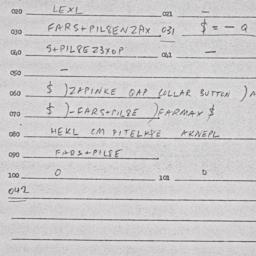 020 LEXL 021 –
030 FARS+PILSENZAX 031 $ = – Q
040 S+PILSEZ3XOP 041 –
050 –
060 $ )ZAPINKE GAP COLLAR BUTTON )A
070 $ )-FARS+PILSE )FARMAX $
080 HEKL CM AKNEPL
090 FARS+PILSE
100 0 101 0
042